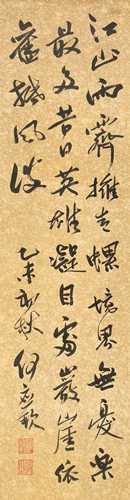 江山雨霽擁青螺境界無憂樂
最多昔日英雄凝目處巖崖依
舊撼風波
乙未初秋何應欽